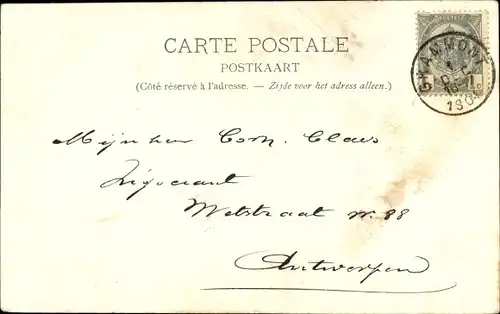 CARTE POSTALE
POSTKAART
(Côté réservé à l'adresse. — Zijde voor het adress alleen.)
Mijnheer Corn. Claes
Wetstraat nr. 88
Antwerpen